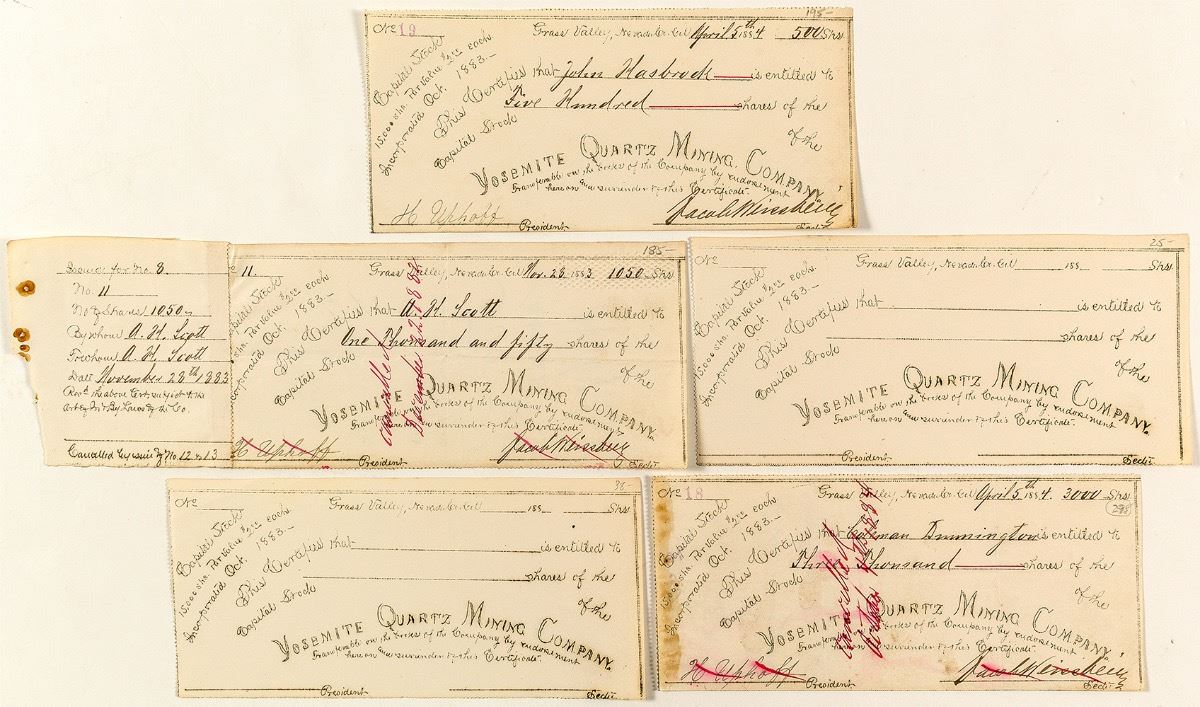 195-
No 19 Grass Valley, Nevada Co. Cal April 5th 1884 500 Shs
Capital Stock
15,000 shs. Par Value $2.00 each.
Incorporated Oct. 1883.-
This Certifies that John Hasbrock is entitled to
Five Hundred shares of the
Capital Stock of the
YOSEMITE QUARTZ MINING COMPANY.
Transferable on the books of the Company by endorsement
hereon and surrender of this Certificate.
H. Uphoff President Jacob Weissbein Sect'y
Issued for No. 8.
No. 11
No of Shares 1050
By whom A. H. Scott
To whom A. H. Scott
Date November 28th 1883
Rec'd the above Cert. subject to the
By Laws of the Co.
Cancelled by issue of No. 12 & 13
185-
11. Grass Valley, Nevada Co. Cal Nov. 28 1883 1050 Shs
Capital Stock
shs. Par Value $2.00 each.
Incorporated Oct. 1883.-
This Certifies that A. H. Scott is entitled to
One Thousand and fifty shares of the
Capital Stock of the
YOSEMITE QUARTZ MINING COMPANY.
Transferable on the books of the Company by endorsement
hereon and surrender of this Certificate.
H. Uphoff President Jacob Weissbein
Cancelled
December 22 1883
25-
No. Grass Valley, Nevada Co. Cal 188 Shs
Capital Stock
15,000 shs. Par Value $2.00 each.
Incorporated Oct. 1883.-
This Certifies that is entitled to
shares of the
Capital Stock of the
YOSEMITE QUARTZ MINING COMPANY.
Transferable on the books of the Company by endorsement
hereon and surrender of this Certificate.
President Sect'y
No Grass Valley, Nevada Co. Cal 188 Shs
Capital Stock
15,000 shs. Par Value $2.00 each.
Incorporated Oct. 1883.-
This Certifies that is entitled to
shares of the
Capital Stock of the
YOSEMITE QUARTZ MINING COMPANY.
Transferable on the books of the Company by endorsement
hereon and surrender of this Certificate.
President Sect'y
No 18 Grass Valley, Nevada Co. Cal April 5th 1884. 3000 Shs
Capital Stock
15,000 shs. Par Value $2.00 each.
Incorporated Oct. 1883.-
This Certifies that Coleman Dunnington is entitled to
Three Thousand shares of the
Capital Stock of the
YOSEMITE QUARTZ MINING COMPANY.
Transferable on the books of the Company by endorsement
hereon and surrender of this Certificate.
H. Uphoff President Jacob Weissbein Sect'y
Cancelled